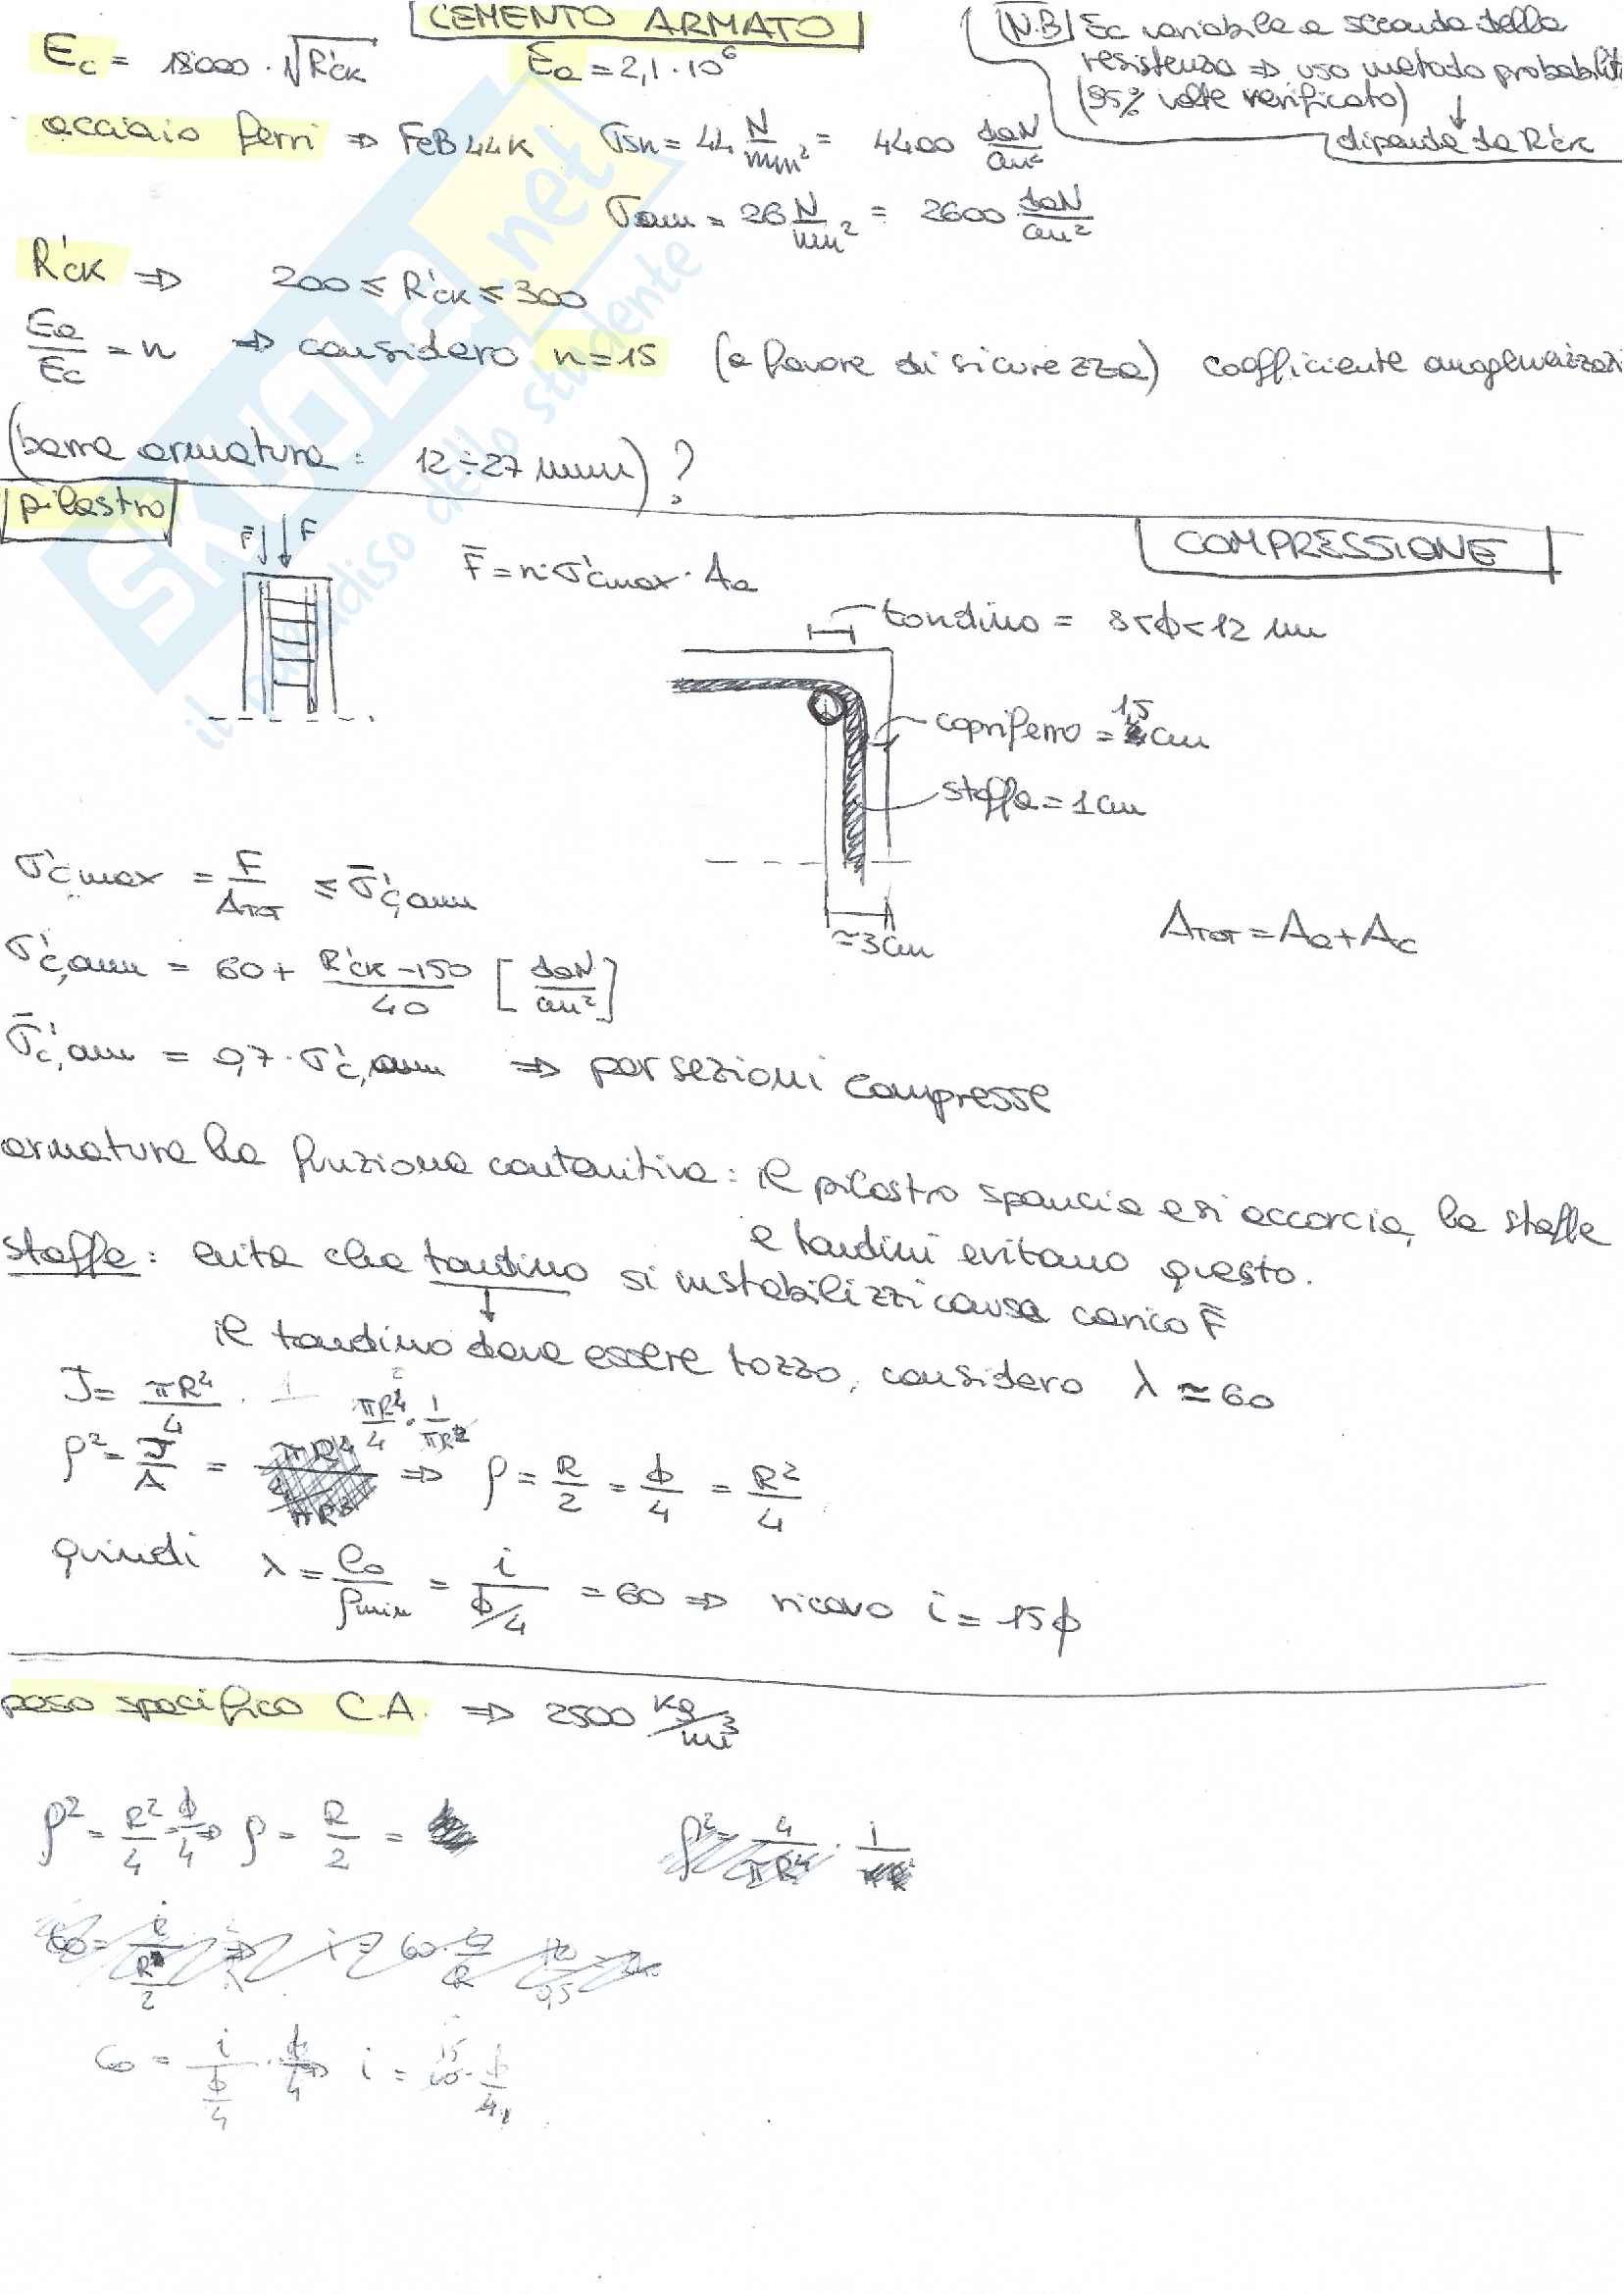 CEMENTO ARMATO
Ec = 18000 · √R'ck
Ea = 2,1 · 10⁶
N.B Ec variabile a seconda della
resistenza ⇒ uso metodo probabilit
(95% volte verificato)
dipende da R'ck
acciaio ferri ⇒ FeB44K σsn = 44 N/mm² = 4400 daN/cm²
σam = 26 N/mm² = 2600 daN/cm²
R'ck ⇒ 200 ≤ R'ck ≤ 300
Ea/Ec = n ⇒ considero n=15 (a favore di sicurezza) coefficiente
(barre armatura: 12÷27 mm) ?
pilastro
COMPRESSIONE
F̄ F
F̄ = n·σ'cmax · Aa
tondino = 8<ϕ<12 mm
copriferro = 1,5 cm
staffa = 1 cm
≃3cm
σ'c,max = F/Atot ≤ σ̄'c,am
Atot = Aa + Ac
σ'c,am = 60 + (R'ck – 150)/40 [daN/cm²]
σ̄'c,am = 0,7 · σ'c,am ⇒ per sezioni compresse
armatura ha funzione contenitiva: il pilastro spancia e si accorcia, le staffe
e tondini evitano questo.
staffa: evita che tondino si instabilizzi causa carico F̄
il tondino deve essere tozzo, considero λ ≃ 60
J = πR⁴/4
ρ² = J/A = πR⁴/4 · 1/πR² ⇒ ρ = R/2 = ϕ/4 = R²/4
quindi λ = l₀/ρmin = i/(ϕ/4) = 60 ⇒ ricavo i = 15ϕ
peso specifico C.A. ⇒ 2500 kg/m³
ρ² = R²/4 = ϕ/4 ⇒ ρ = R/2 =
ρ² = 4/πR⁴ · 1/
60 = i/(ϕ/4) · ϕ/4 ⇒ i =
SKUOLA.net
il paradiso dello studente